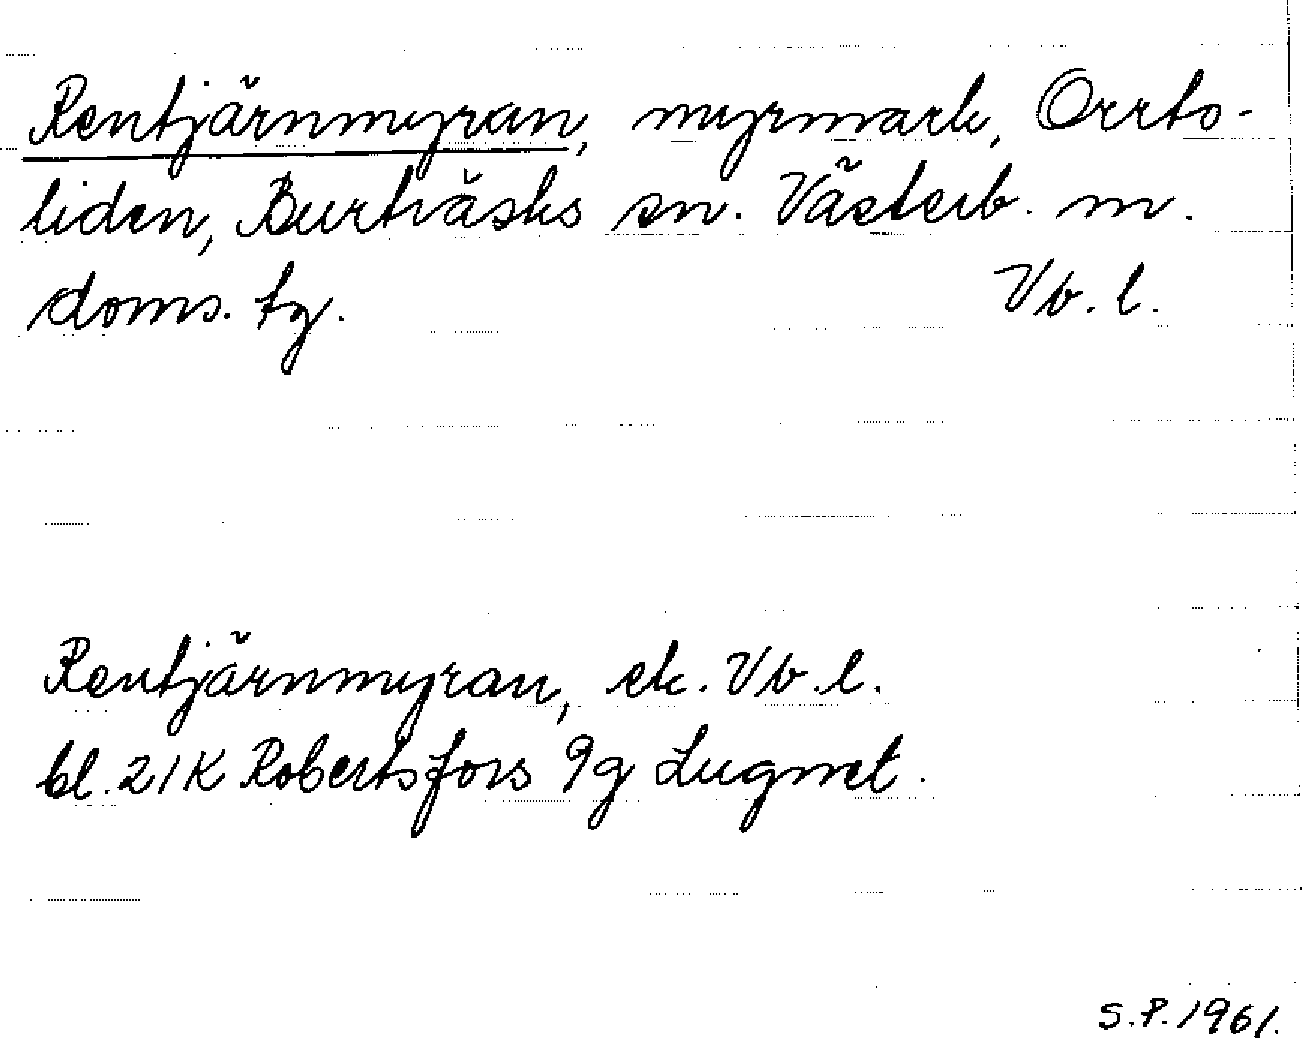 Rentjärnmyran, myrmark, Orrto-
liden, Burträsks sn. Västerb. m.
doms. fg. Vb. l.
Rentjärnmyran, ek. Vb. l.
bl. 21K Robertsfors 9g Lugnet.
S.P. 1961.